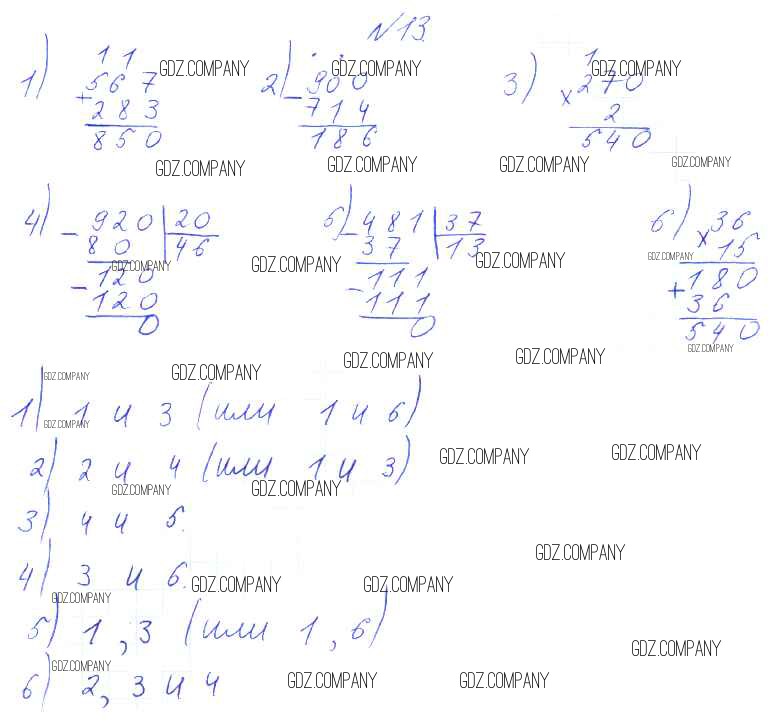 №13.
1) 2) 3)
11 . . 1
567 900 270
+ 283 - 714 × 2
850 186 540
4) 5) 6)
- 920 | 20 - 481 | 37 × 36
80 46 37 13 15
- 120 - 111 180
120 111 + 36
0 0 540
1) 1 и 3 (или 1 и 6)
2) 2 и 4 (или 1 и 3)
3) 4 и 5.
4) 3 и 6.
5) 1, 3 (или 1, 6)
6) 2, 3 и 4
GDZ.COMPANY GDZ.COMPANY GDZ.COMPANY
GDZ.COMPANY GDZ.COMPANY GDZ.COMPANY GDZ.COMPANY
GDZ.COMPANY GDZ.COMPANY GDZ.COMPANY GDZ.COMPANY
GDZ.COMPANY GDZ.COMPANY GDZ.COMPANY GDZ.COMPANY GDZ.COMPANY
GDZ.COMPANY GDZ.COMPANY GDZ.COMPANY
GDZ.COMPANY GDZ.COMPANY
GDZ.COMPANY
GDZ.COMPANY GDZ.COMPANY GDZ.COMPANY
GDZ.COMPANY
GDZ.COMPANY GDZ.COMPANY GDZ.COMPANY